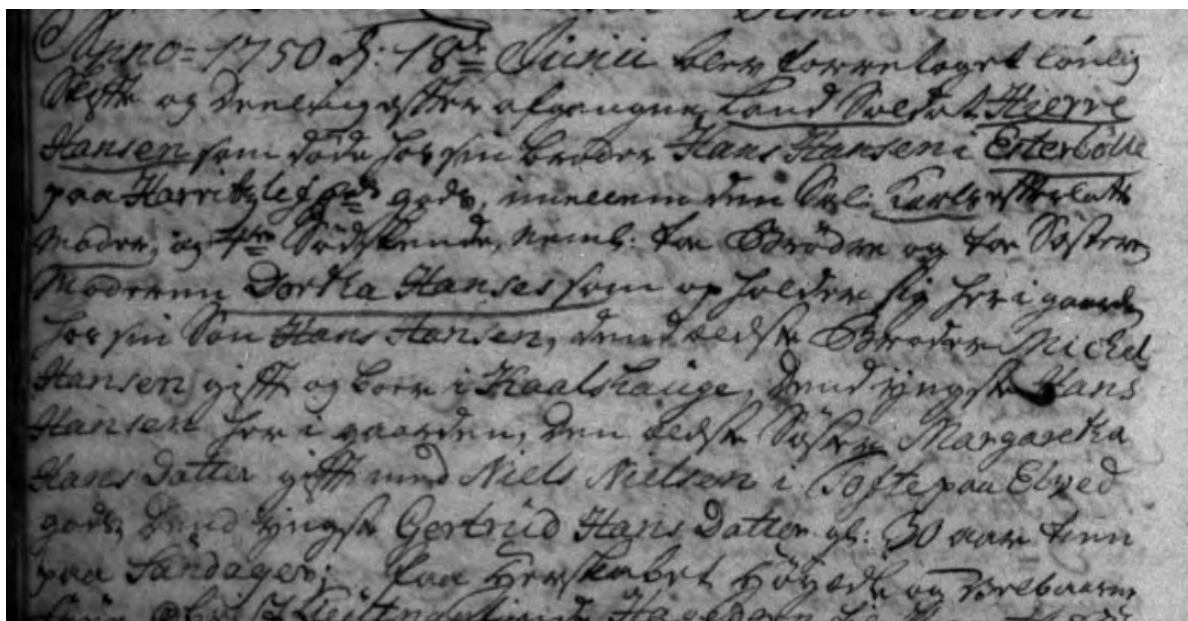 Simon Pedersen
Anno= 1750 d: 18de Junii blev forretaget lovlig
Skifte og Deeling efter afgangne Land Soldat Hierre
Hansen som døde hos sin broder Hans Hansen i Esterbølle
paa Harritzlefgrds godz, imellem den Sal: Karls efterlatte
Moder, og 4re Sødskende, neml: toe Brødre og toe Søstre
Moderen Dortha Hanses som opholder sig her i gaarden
hos sin Søn Hans Hansen, dend eldste Broder Michel
Hansen gift og boer i Kaalshauge, Dend yngste Hans
Hansen her i gaarden, den eldste Søster Margaretha
Hans Datter gift med Niels Nielsen i Tofte paa Elved
godz, Dend yngste Gertrud Hans Datter gl: 30 aar tien
paa Sandager; Paa Herskabet Høyædle og Velbaarne